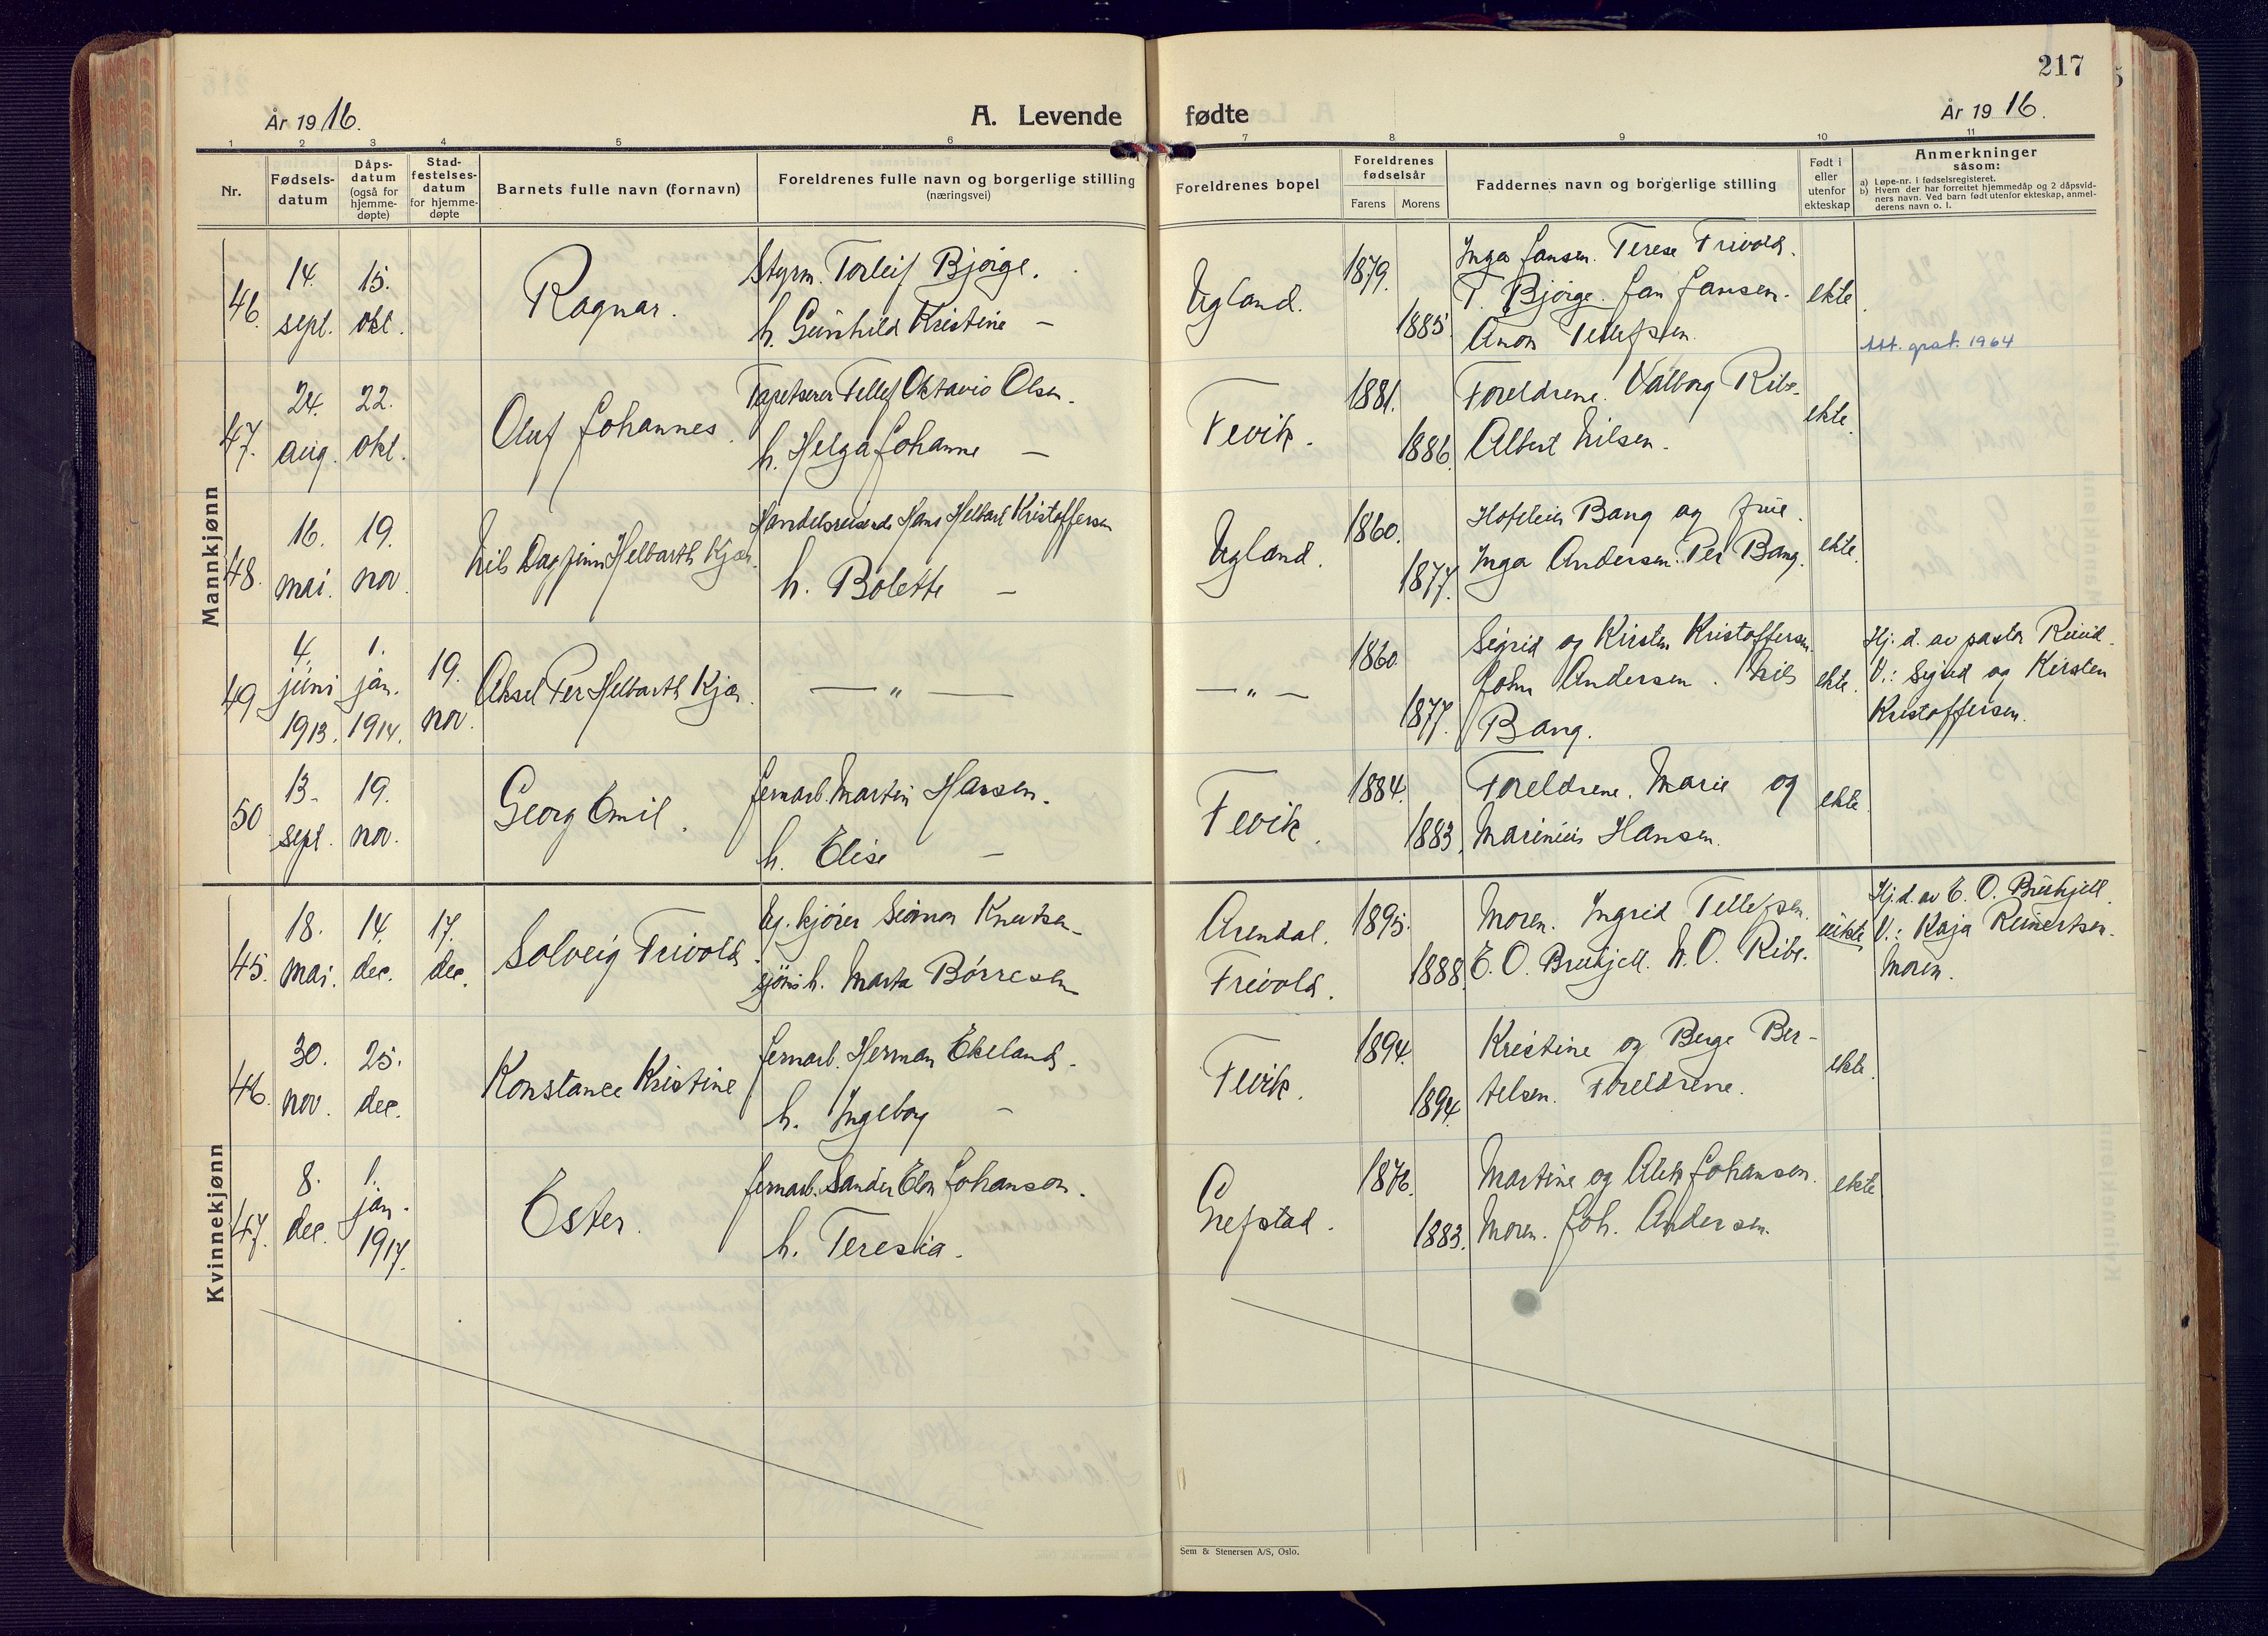 217
År 1916.
A. Levende fødte
År 1916.
1 2 3 4 5 6 7 8 9 10 11
Nr.
Fødsels-
datum
Dåps-
datum
(også for
hjemme-
døpte)
Stad-
festelses-
datum
for hjemme-
døpte
Barnets fulle navn (fornavn)
Foreldrenes fulle navn og borgerlige stilling
(næringsvei)
Foreldrenes bopel
Foreldrenes
fødselsår
Farens Morens
Faddernes navn og borgerlige stilling
Født i
eller
utenfor
ekteskap
Anmerkninger
såsom:
a) Løpe-nr. i fødselsregisteret.
b) Hvem der har forrettet hjemmedåp og 2 dåpsvid-
ners navn. Ved barn født utenfor ekteskap, anmel-
derens navn o. l.
Mannkjønn
46.
14.
sept.
15.
okt.
Ragnar.
Styrm. Torleif Bjørge.
h. Gunhild Kristine —
Ugland.
1879.
1885
Inga Jansen. Terese Trivold.
T. Bjørge. Jan Jansen.
Anon Tellefsen.
ekte
Att. grat. 1964
47.
24.
aug.
22.
okt.
Oluf Johannes.
Tapetserer Tellef Oktavio Olsen.
h. Helga Johanne —
Fevik.
1881.
1886.
Foreldrene. Valborg Ribe.
Albert Nilsen.
ekte.
48.
16.
mai.
19.
nov.
Nils Dagfinn Helbarth Kjær.
Handelsreisende Hans Helbart Kristoffersen
h. Bolette —
Ugland.
1860.
1877.
Bang og frue.
Inga Andersen. Per Bang.
ekte.
49
4.
juni
1913.
1.
jan.
1914.
19.
nov.
Aksel Per Helbarth Kjær.
— " —
— " —
1860.
1877.
Sigrid og Kirsten Kristoffersen.
John Andersen. Nils
Bang.
ekte.
Hj. d. av pastor Ruud.
V.: Sigrid og Kirsten
Kristoffersen.
50
13.
sept.
19.
nov.
Georg Emil.
Jernarb. Martin Hansen.
h. Elise —
Fevik.
1884.
1883.
Foreldrene. Marie og
Marinius Hansen.
ekte.
Kvinnekjønn
45.
18.
mai.
14.
dec.
17.
dec.
Solveig Trivold.
kjører Simon Knudsen
h. Marta Børresen
Arendal.
Frivold.
1895.
1888.
Moren. Ingrid Tellefsen.
E. O. Bruhjell. N. O. Ribe.
uekte
Hj. d. av E. O. Bruhjell.
V.: Kaja Reinertsen.
Moren.
46.
30.
nov.
25.
dec.
Konstance Kristine
Jernarb. Herman Ekeland.
h. Ingeborg —
Fevik.
1894.
1894.
Kristine og Berge Ber-
telsen. Foreldrene.
ekte.
47.
8.
dec.
1.
jan.
1917.
Ester.
Jernarb. Sander Elon Johanson.
h. Teresia.
Grefstad.
1876.
1883.
Martine og Alek Johansen.
Moren. Joh. Andersen.
ekte
Sem & Stenersen A/S, Oslo.